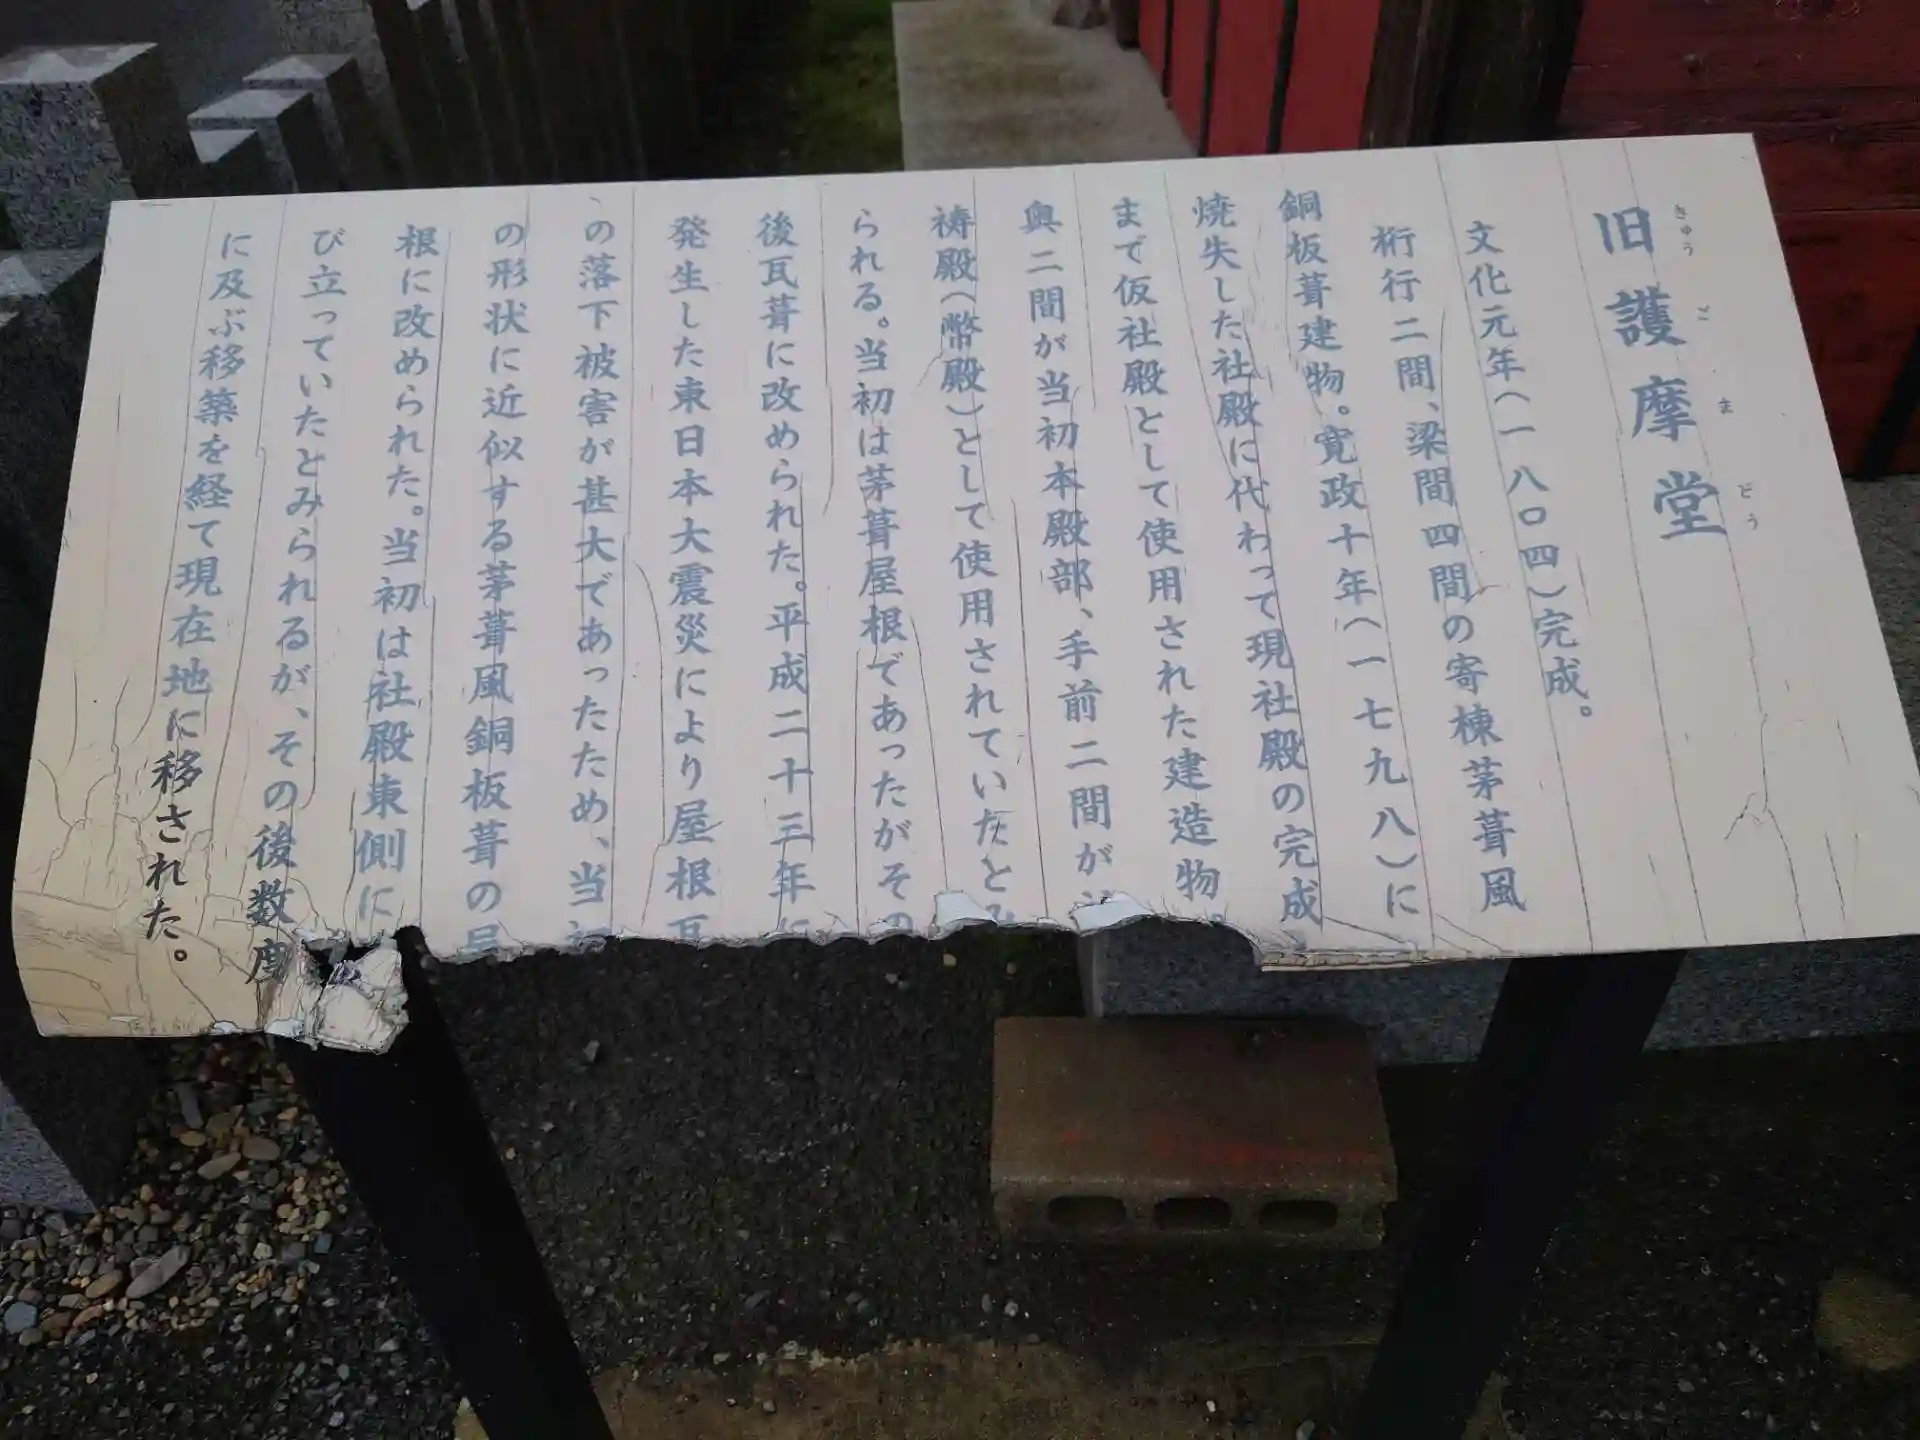 旧護摩堂
きゅうごまどう
文化元年(一八〇四)完成。
桁行二間、梁間四間の寄棟茅葺風
銅板葺建物。寛政十年(一七九八)に
焼失した社殿に代わって現社殿の完成
まで仮社殿として使用された建造物。
奥二間が当初本殿部、手前二間が
祷殿(幣殿)として使用されていたとみ
られる。当初は茅葺屋根であったがその
後瓦葺に改められた。平成二十三年に
発生した東日本大震災により屋根瓦
の落下被害が甚大であったため、当初
の形状に近似する茅葺風銅板葺の屋
根に改められた。当初は社殿東側に
び立っていたとみられるが、その後数度
に及ぶ移築を経て現在地に移された。